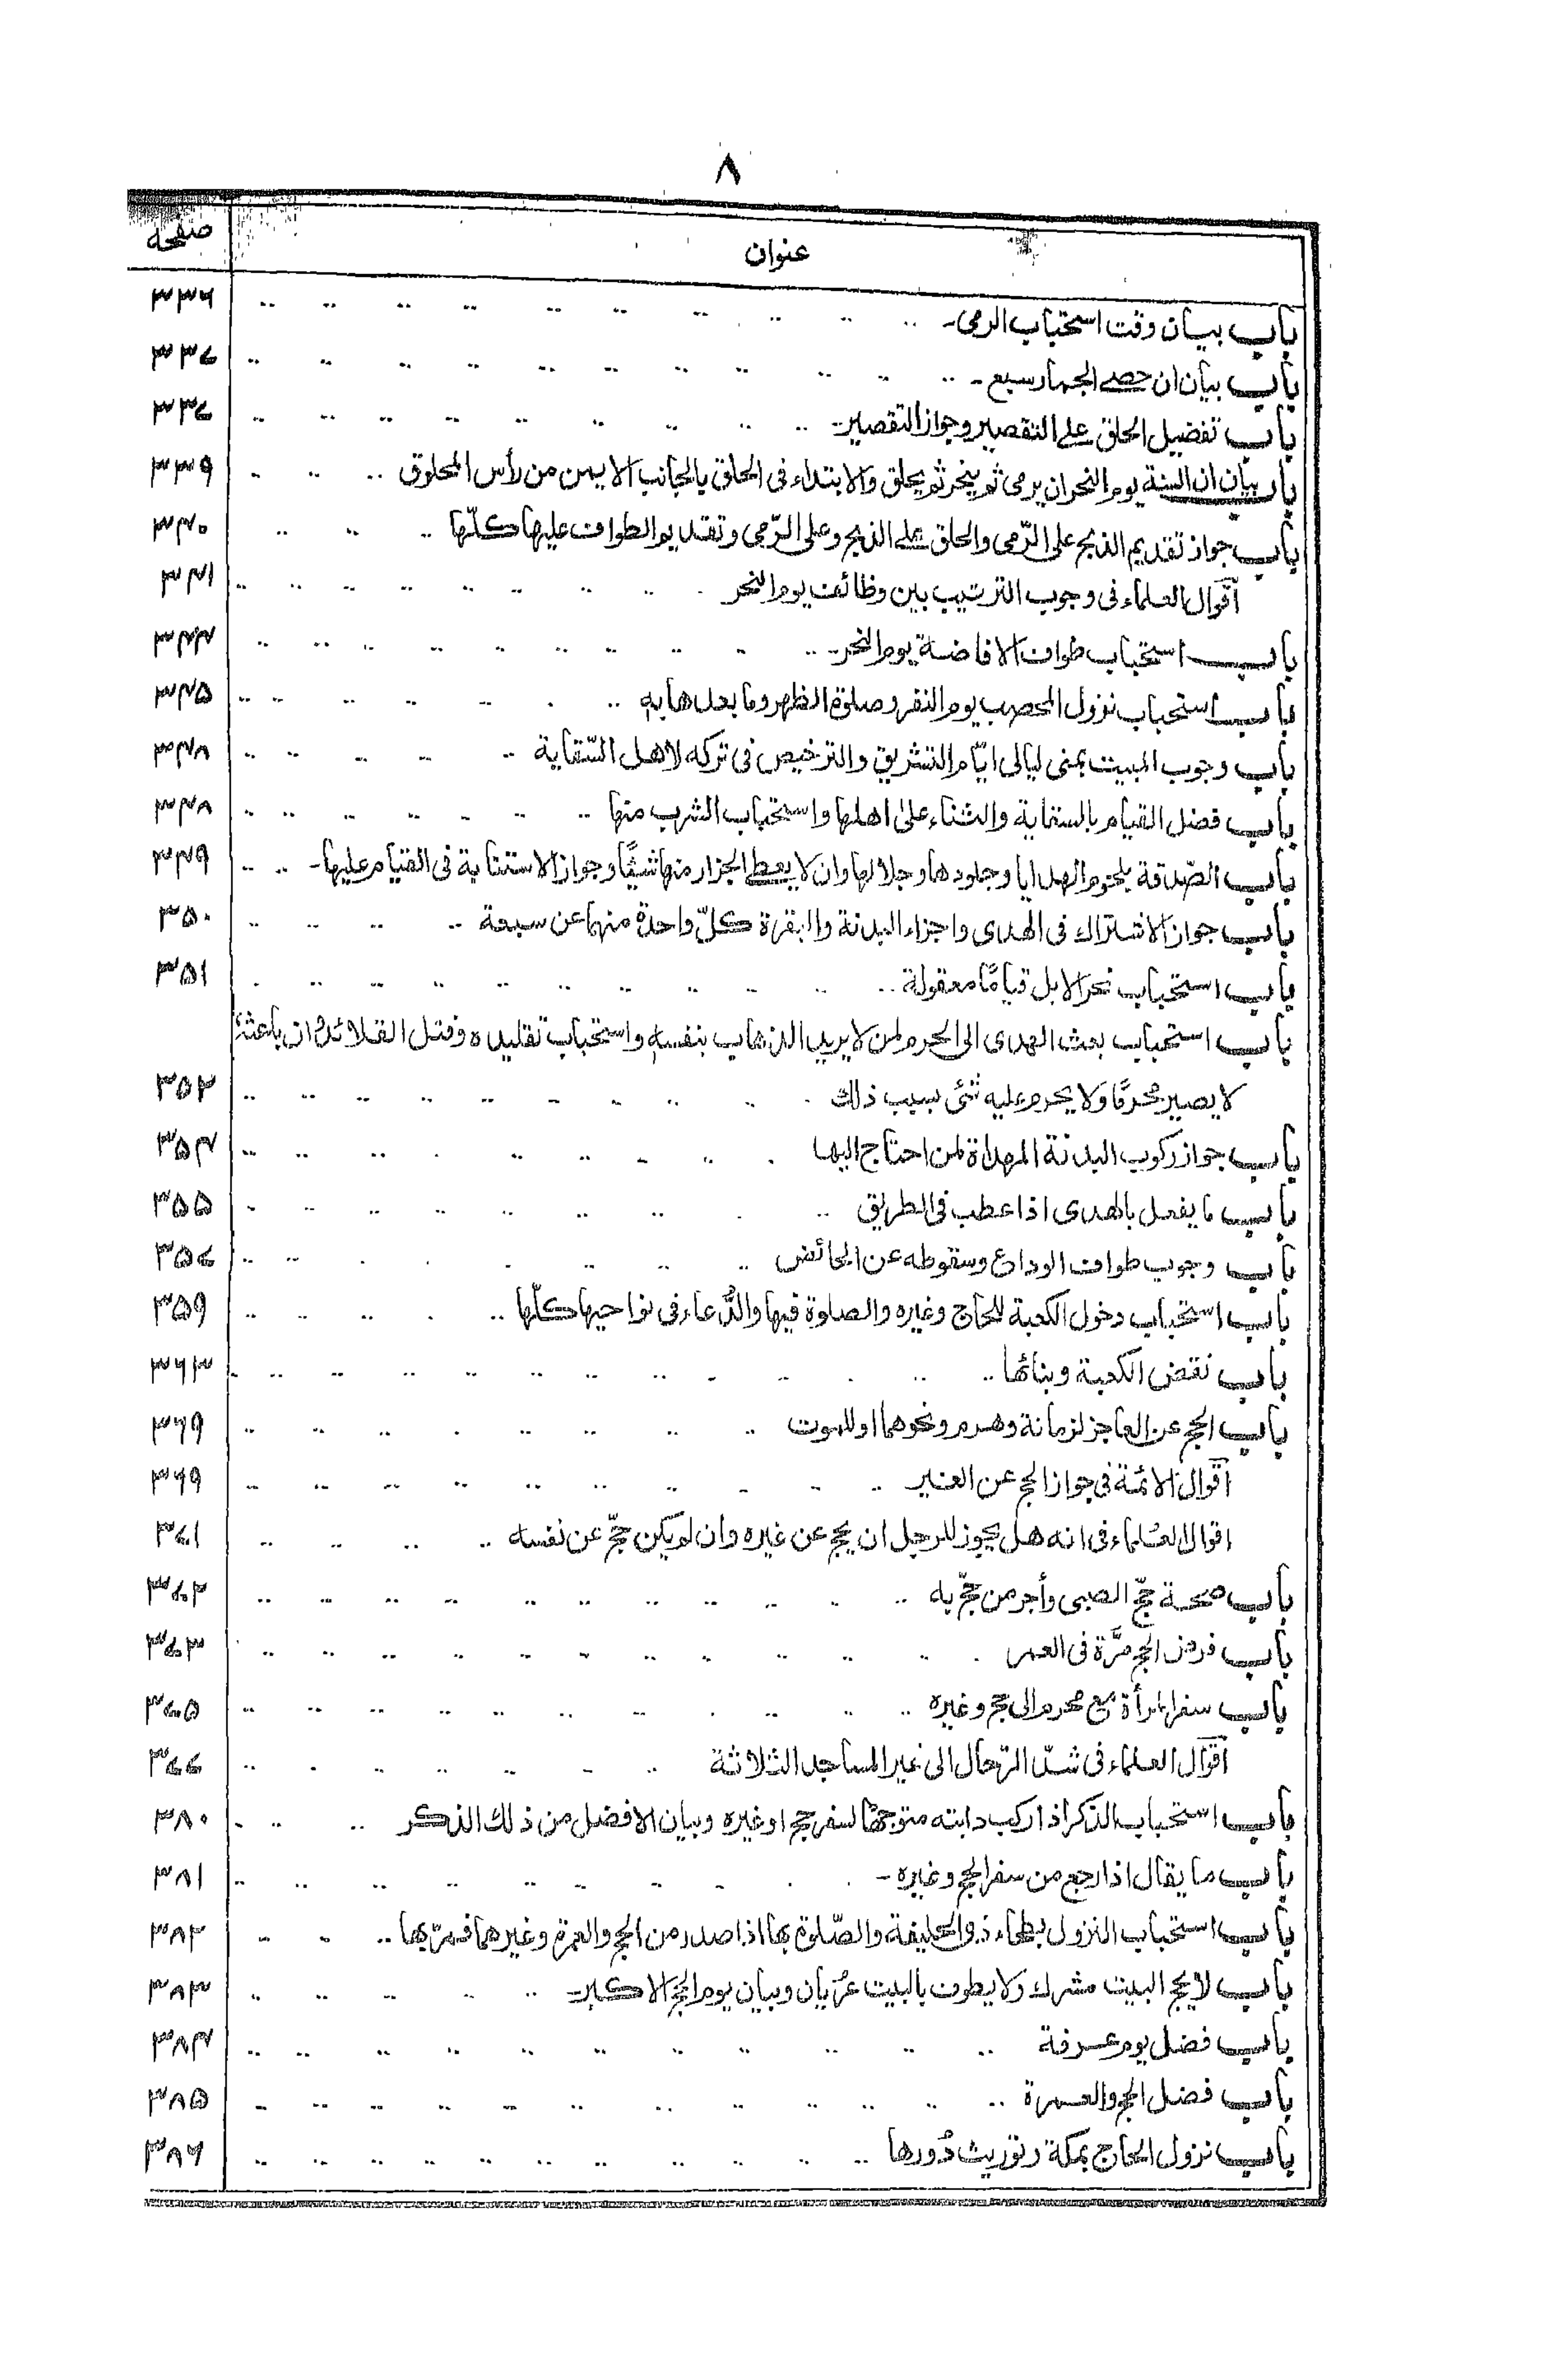 ٨
عنوان صفحه
باب بیان وقت استحباب الرمی۔ ۳۳۶
باب بیان ان حصے الجمار سبع۔ ۳۳۷
باب تفضیل الحلق علے التقصیر وجواز التقصیر۔ ۳۳۷
باب بیان ان السنة یوم النحر ان یرمی ثم ینحر ثم یحلق والابتداء فی الحلق بالجانب الایمن من رأس المحلوق ۳۳۹
باب جواز تقدیم الذبح علی الرّمی والحلق علے الذبح وعلی الرّمی وتقدیم الطواف علیها کلّها ۳۴۰
اقوال العلماء فی وجوب الترتیب بین وظائف یوم النحر ۳۴۱
باب استحباب طواف الافاضة یوم النحر۔ ۳۴۴
باب استحباب نزول المحصب یوم النفر وصلوة الظهر وما بعدها به ۳۴۵
باب وجوب المبیت بمنی لیالی ایّام التشریق والترخیص فی ترکه لاهل السّقایة ۳۴۸
باب فضل القیام بالسقایة والثناء علیٰ اهلها واستحباب الشرب منها ۳۴۸
باب الصّدقة بلحوم الهدایا وجلودها وجلالها وان لا یعطے الجزار منها شیئًا وجواز الاستنابة فی القیام علیها۔ ۳۴۹
باب جواز الاشتراك فی الهدی واجزاء البدنة والبقرة کلّ واحدة منهما عن سبعة ۳۵۰
باب استحباب نحر الابل قیامًا معقولة ۳۵۱
باب استحباب بعث الهدی الی الحرم لمن لا یرید الذهاب بنفسهٖ واستحباب تقلیده وفتل القلائد وان باعثهٗ
لا یصیر محرمًا ولا یحرم علیه شئی بسبب ذلك ۳۵۲
باب جواز رکوب البدنة المهداة لمن احتاج الیها ۳۵۴
باب ما یفعل بالهدی اذا عطب فی الطریق ۳۵۵
باب وجوب طواف الوداع وسقوطه عن الحائض ۳۵۷
باب استحباب دخول الکعبة للحاج وغیره والصلوة فیها والدُّعاء فی نواحیها کلّها ۳۵۹
باب نقض الکعبة وبنائها ۳۶۳
باب الحج عن العاجز لزمانة وهرم ونحوهما او للموت ۳۶۹
اقوال الائمّة فی جواز الحج عن الغیر ۳۶۹
اقوال العُلماء فی انه هل یجوز للرجل ان یحج عن غیره وان لم یکن حجّ عن نفسه ۳۷۱
باب صحة حجّ الصبی وأجر من حجّ به ۳۷۲
باب فرض الحج مرَّة فی العمر ۳۷۳
باب سفر المرأة مع محرم الی حج وغیره ۳۷۵
اقوال العلماء فی شدّ الرّحال الی غیر المساجد الثلاثة ۳۷۷
باب استحباب الذکر اذا رکب دابته متوجهًا لسفر حج او غیره وبیان الافضل من ذلك الذکر ۳۸۰
باب ما یقال اذا رجع من سفر الحج وغیره۔ ۳۸۱
باب استحباب النزول ببطحاء ذی الحلیفة والصّلوة بها اذا صدر من الحج والعمرة وغیرهما فمرّ بها ۳۸۲
باب لا یحج البیت مشرك ولا یطوف بالبیت عُریان وبیان یوم الحج الاکبر ۳۸۳
باب فضل یوم عرفة ۳۸۴
باب فضل الحج والعمرة ۳۸۵
باب نزول الحاج بمکة وتوریث دُورها ۳۸۶